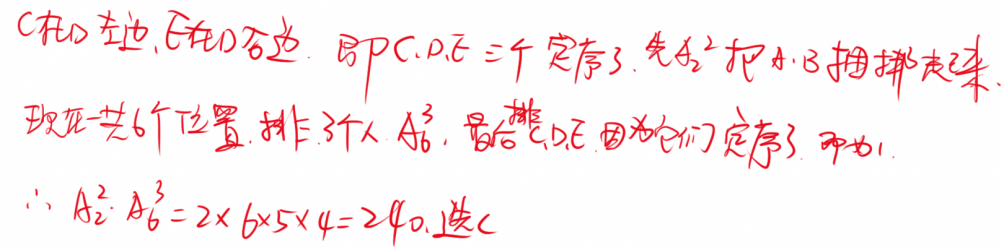 C在D左边,E在D右边. 即C.D.E三个定序了.先A₂²把A.B捆绑起来.
现在一共6个位置.排.3个人 A₆³. 最后排C,D,E.因为它们定序了.即为1.
∴ A₂²·A₆³=2×6×5×4=240.选C